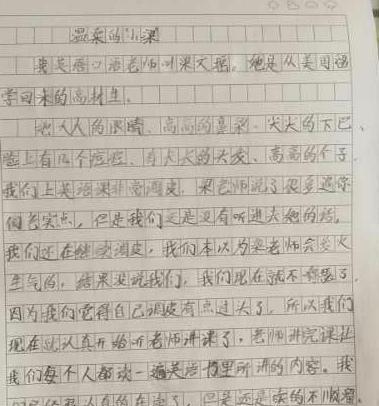 温柔的小梁
我英语口语老师叫梁文瑶。她是从美国留
学回来的高材生。
她大大的眼睛、高高的鼻梁、尖尖的下巴、
脸上有几个痘痘、有长长的头发、高高的个子。
我们上英语课非常调皮，梁老师说了很多遍你
们老实点，但是我们还是没有听进去她的话。
我们还在继续调皮，我们本以为梁老师会发火
生气的，结果没说我们，我们现在就不
因为我们觉得自己调皮有点过大了，所以我们
现在就认真开始听老师讲课了，老师讲完课让
我们每个人都读一遍英语书里所讲的内容。我
认真的在读了，但是还是读的不顺溜。